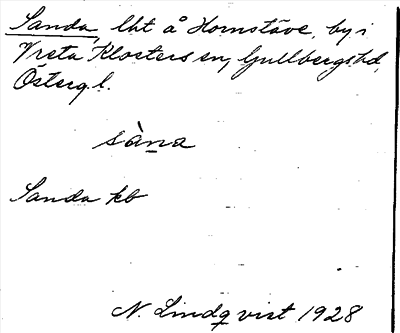 Sanda, lht å Hornstäve, by i
Vreta Klosters sn, Gullbergs hd,
Östergl.
sàna
Sanda kb
N. Lindqvist 1928